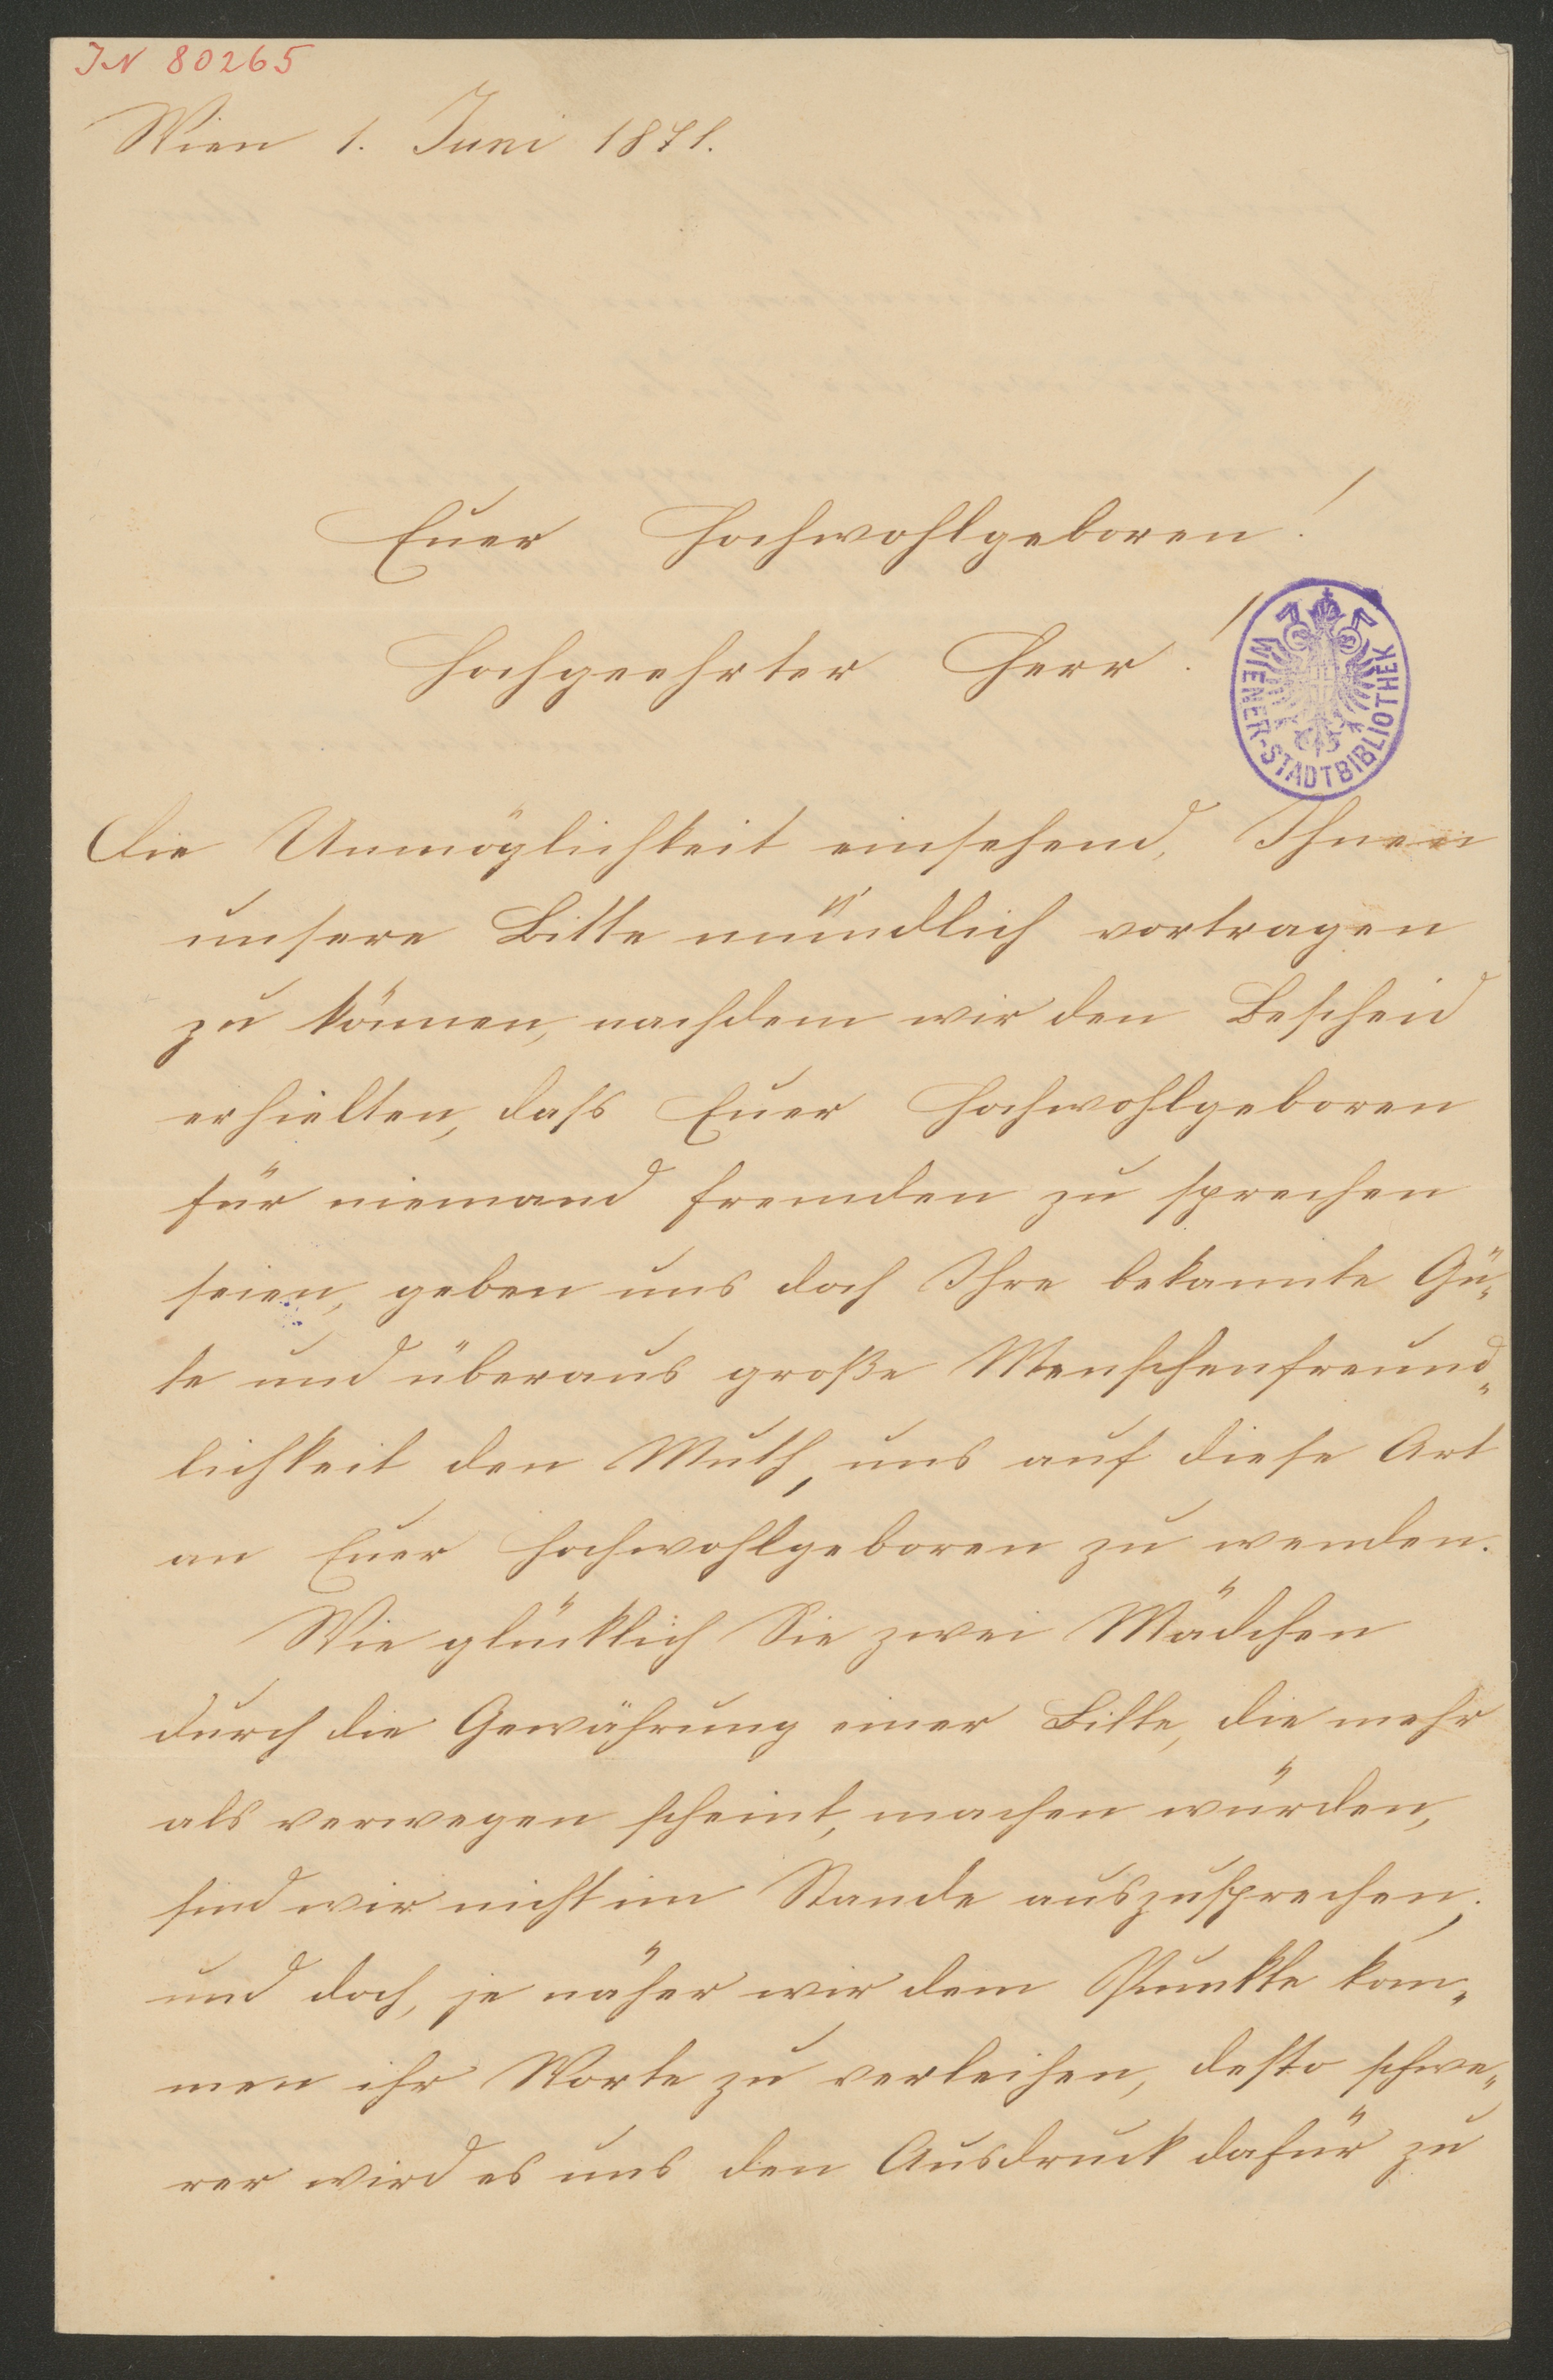 IN 80265
Wien 1. Juni 1871.
Euer Hochwohlgeboren!
Hochgeehrter Herr!
WIENER-STADTBIBLIOTHEK
Die Unmöglichkeit einsehend, Ihnen
unsere Bitte mündlich vortragen
zu können, nachdem wir den Bescheid
erhielten, dass Euer Hochwohlgeboren
für niemand fremden zu sprechen
seien, geben uns doch Ihre bekannte Gü-
te und überaus große Menschenfreund-
lichkeit den Muth, uns auf diese Art
an Euer Hochwohlgeboren zu wenden.
Wie glücklich Sie zwei Mädchen
durch die Gewährung einer Bitte, die mehr
als verwegen scheint, machen würden,
sind wir nicht im Stande auszusprechen;
und doch, je näher wir dem Punkte kom-
men ihr Worte zu verleihen, desto schwe-
rer wird es uns den Ausdruck dafür zu